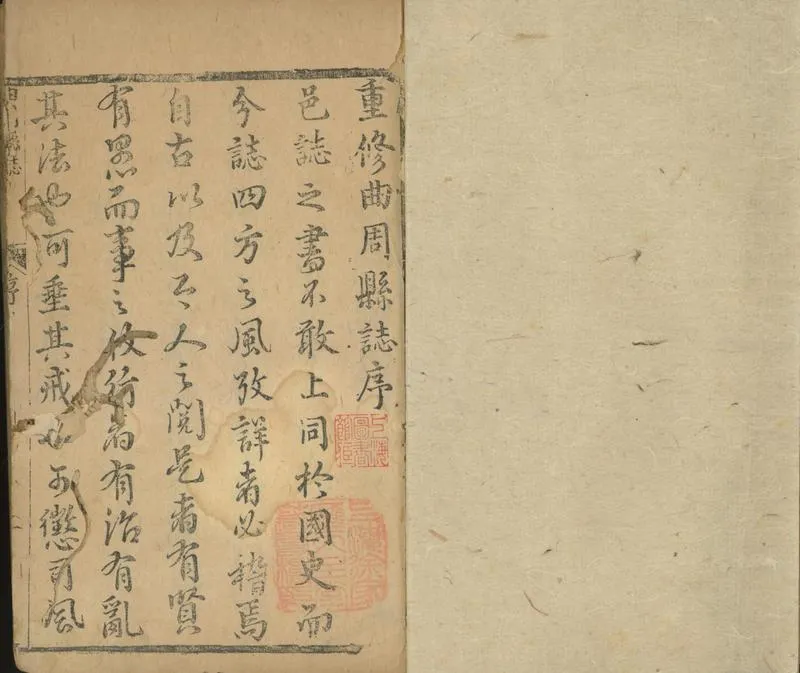 重修曲周縣誌序
邑誌之書不敢上同於國史而
今誌四方之風攷詳者必稽焉
自古以及今人之閱是者有賢
有愚而事之攸行者有治有亂
其法也可垂其戒也可懲司風